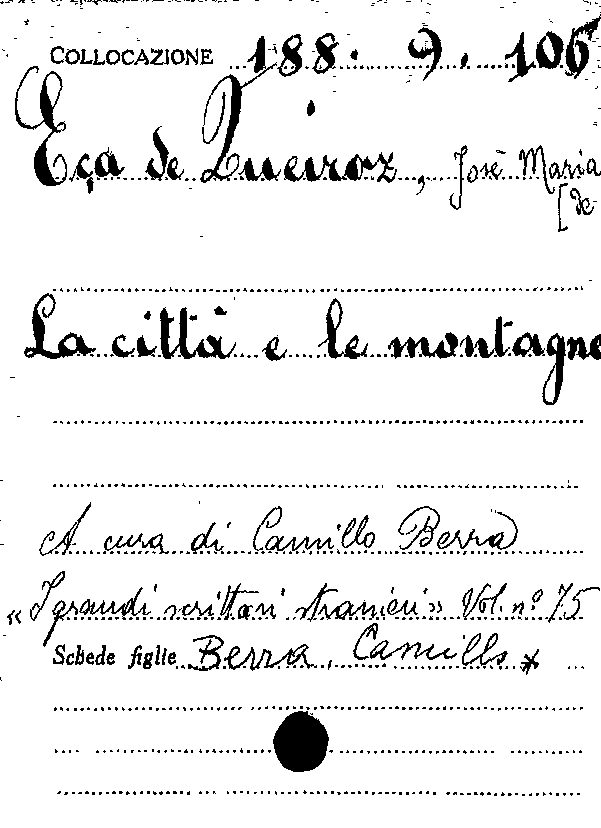 COLLOCAZIONE 188. 9. 106
Eça de Queiroz, José Maria
[de
La città e le montagne
A cura di Camillo Berra
«I grandi scrittori stranieri» Vol. nº 75
Schede figlie Berra, Camillo *